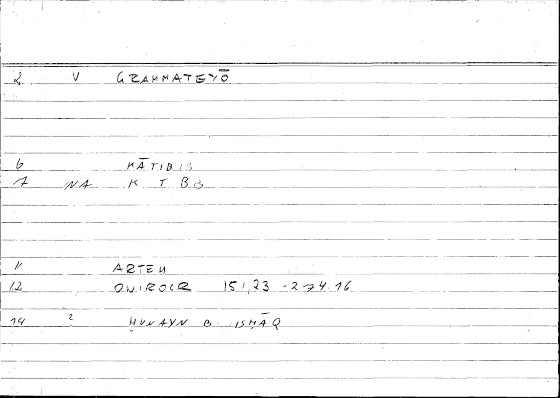 2 V GRAMMATEYŌ
6 KĀTIBIS
7 NA K T B B
11 ARTEM
12 ONIROCR 151,23 - 274.16
14 2 ḤUNAYN B. ISḤĀQ